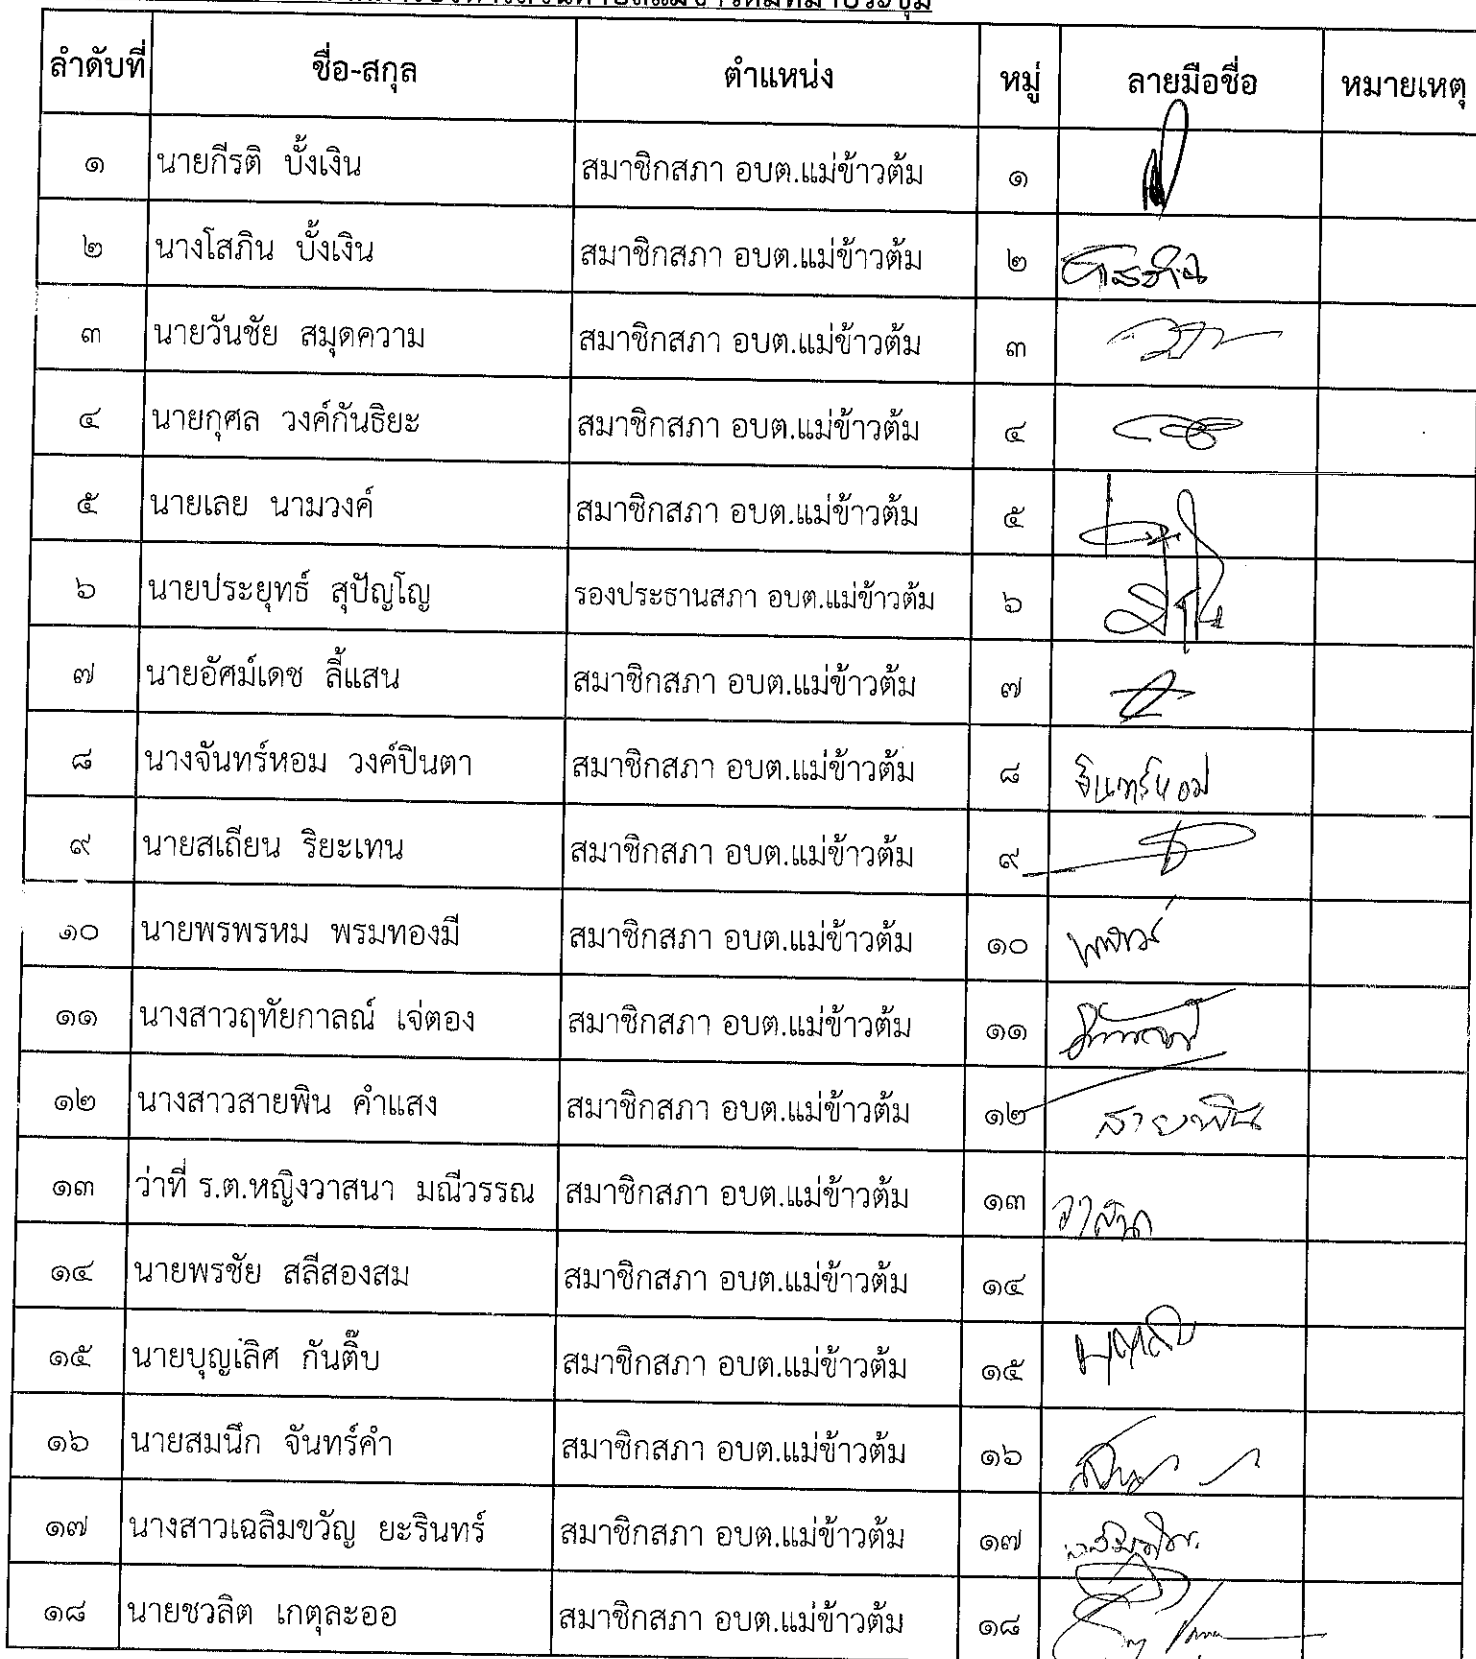 ลำดับที่ ชื่อ-สกุล ตำแหน่ง หมู่ ลายมือชื่อ หมายเหตุ
๑ นายกีรติ บั้งเงิน สมาชิกสภา อบต.แม่ข้าวต้ม ๑
๒ นางโสภิน บั้งเงิน สมาชิกสภา อบต.แม่ข้าวต้ม ๒ โสภิน
๓ นายวันชัย สมุดความ สมาชิกสภา อบต.แม่ข้าวต้ม ๓
๔ นายกุศล วงค์กันธิยะ สมาชิกสภา อบต.แม่ข้าวต้ม ๔
๕ นายเลย นามวงค์ สมาชิกสภา อบต.แม่ข้าวต้ม ๕
๖ นายประยุทธ์ สุปัญโญ รองประธานสภา อบต.แม่ข้าวต้ม ๖
๗ นายอัศม์เดช ลี้แสน สมาชิกสภา อบต.แม่ข้าวต้ม ๗
๘ นางจันทร์หอม วงค์ปินตา สมาชิกสภา อบต.แม่ข้าวต้ม ๘ จันทร์หอม
๙ นายสเถียน ริยะเทน สมาชิกสภา อบต.แม่ข้าวต้ม ๙
๑๐ นายพรพรหม พรมทองมี สมาชิกสภา อบต.แม่ข้าวต้ม ๑๐
๑๑ นางสาวฤทัยกาลณ์ เจ่ตอง สมาชิกสภา อบต.แม่ข้าวต้ม ๑๑
๑๒ นางสาวสายพิน คำแสง สมาชิกสภา อบต.แม่ข้าวต้ม ๑๒ สายพิน
๑๓ ว่าที่ ร.ต.หญิงวาสนา มณีวรรณ สมาชิกสภา อบต.แม่ข้าวต้ม ๑๓ วาสนา
๑๔ นายพรชัย สลีสองสม สมาชิกสภา อบต.แม่ข้าวต้ม ๑๔
๑๕ นายบุญเลิศ กันติ๊บ สมาชิกสภา อบต.แม่ข้าวต้ม ๑๕
๑๖ นายสมนึก จันทร์คำ สมาชิกสภา อบต.แม่ข้าวต้ม ๑๖
๑๗ นางสาวเฉลิมขวัญ ยะรินทร์ สมาชิกสภา อบต.แม่ข้าวต้ม ๑๗
๑๘ นายชวลิต เกตุละออ สมาชิกสภา อบต.แม่ข้าวต้ม ๑๘